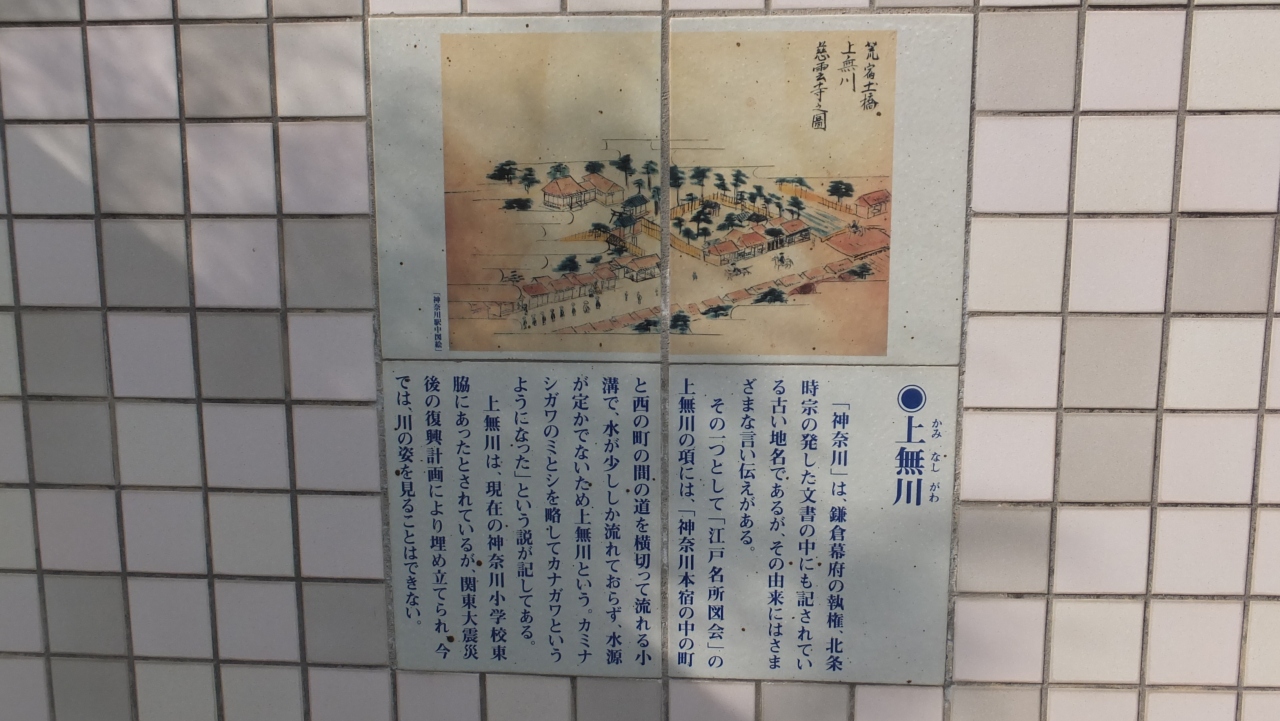 荒宿土橋
上無川
慈雲寺之圖
『神奈川駅中図絵』
◉上無川
かみ なし がわ
「神奈川」は、鎌倉幕府の執権、北条
時宗の発した文書の中にも記されてい
る古い地名であるが、その由来にはさま
ざまな言い伝えがある。
その一つとして「江戸名所図会」の
上無川の項には、「神奈川本宿の中の町
と西の町の間の道を横切って流れる小
溝で、水が少ししか流れておらず、水源
が定かでないため上無川という。カミナ
シガワのミとシを略してカナガワという
ようになった」という説が記してある。
上無川は、現在の神奈川小学校東
脇にあったとされているが、関東大震災
後の復興計画により埋め立てられ、今
では、川の姿を見ることはできない。